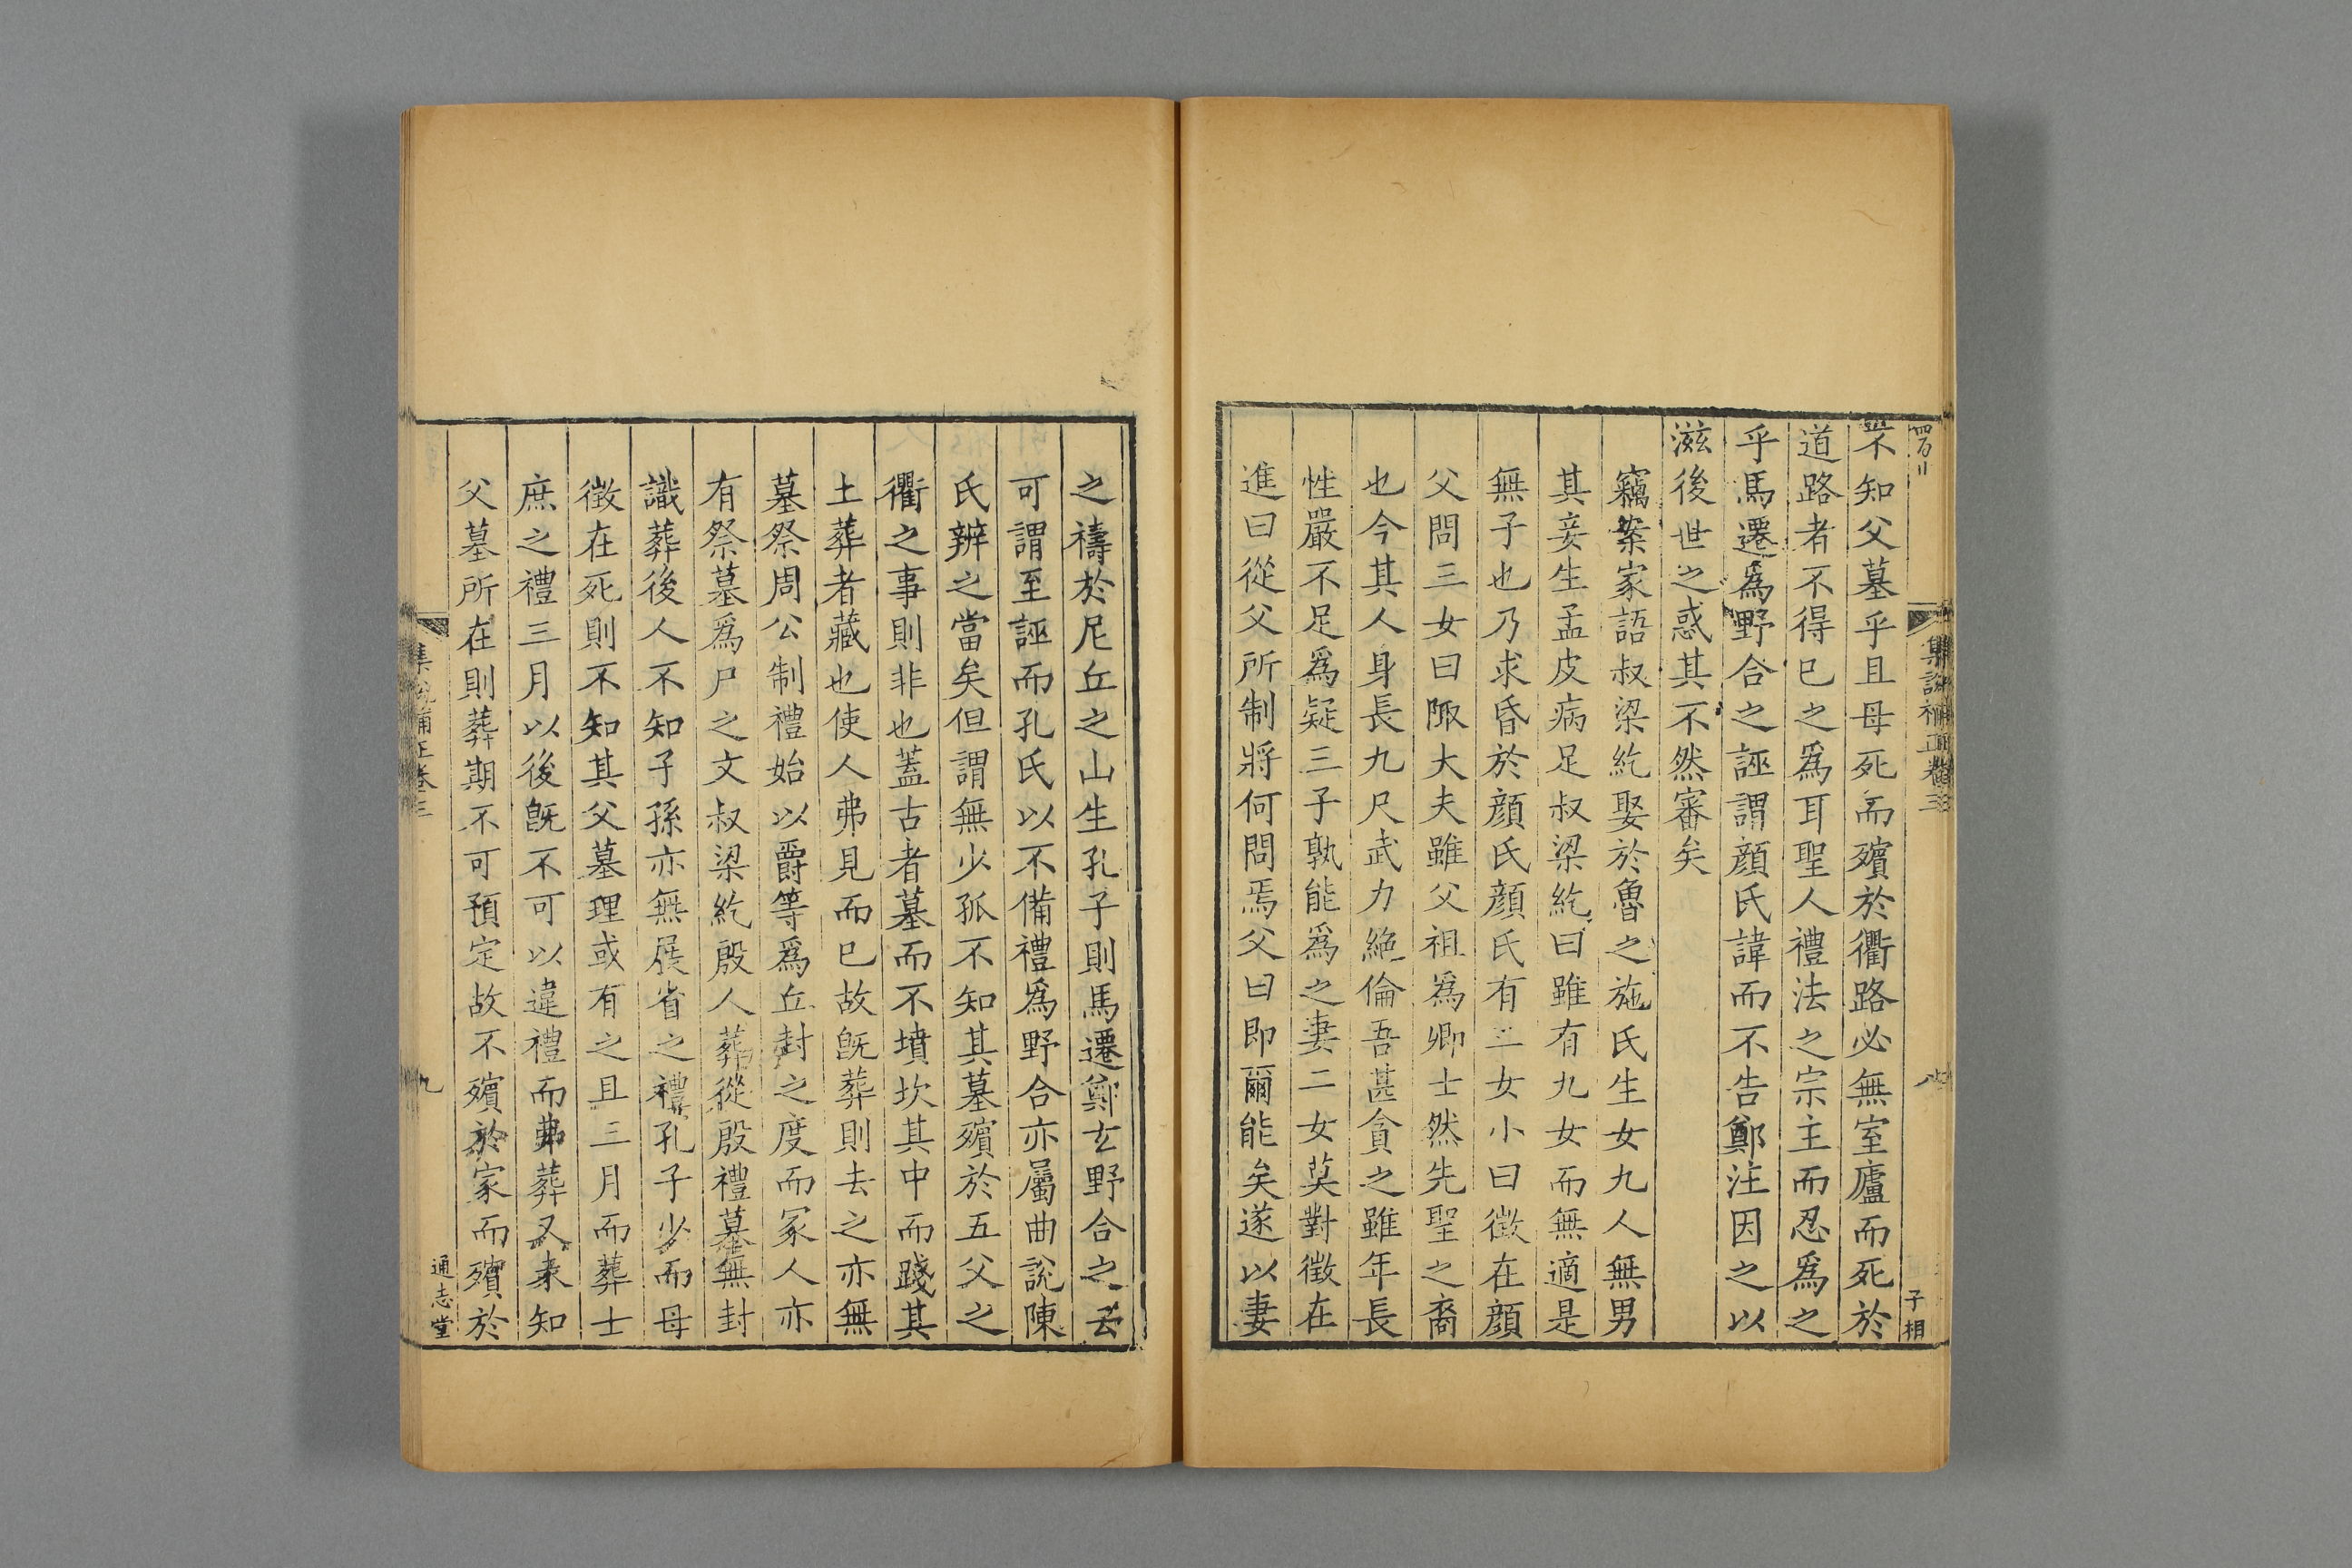 不知父墓乎且母死而殯於衢路必無室廬而死於
道路者不得已之爲耳聖人禮法之宗主而忍爲之
乎馬遷爲野合之誣謂顔氏諱而不告鄭注因之以
滋後世之惑其不然審矣
竊案家語叔梁紇娶於魯之施氏生女九人無男
其妾生孟皮病足叔梁紇曰雖有九女而無適是
無子也乃求昏於顔氏顔氏有三女小曰徴在顔
父問三女曰陬大夫雖父祖爲卿士然先聖之裔
也今其人身長九尺武力絶倫吾甚貪之雖年長
性嚴不足爲疑三子孰能爲之妻二女莫對徴在
進曰從父所制將何問焉父曰即爾能矣遂以妻
之禱於尼丘之山生孔子則馬遷鄭玄野合之云
可謂至誣而孔氏以不備禮爲野合亦屬曲說陳
氏辨之當矣但謂無少孤不知其墓殯於五父之
衢之事則非也蓋古者墓而不墳坎其中而踐其
土葬者藏也使人弗見而已故旣葬則去之亦無
墓祭周公制禮始以爵等爲丘封之度而冢人亦
有祭墓爲尸之文叔梁紇殷人葬從殷禮墓無封
識葬後人不知子孫亦無展省之禮孔子少而母
徴在死則不知其父墓理或有之且三月而葬士
庶之禮三月以後旣不可以違禮而弗葬又未知
父墓所在則葬期不可預定故不殯於家而殯於
集說補正卷三
八
子相
集說補正卷三
九
通志堂